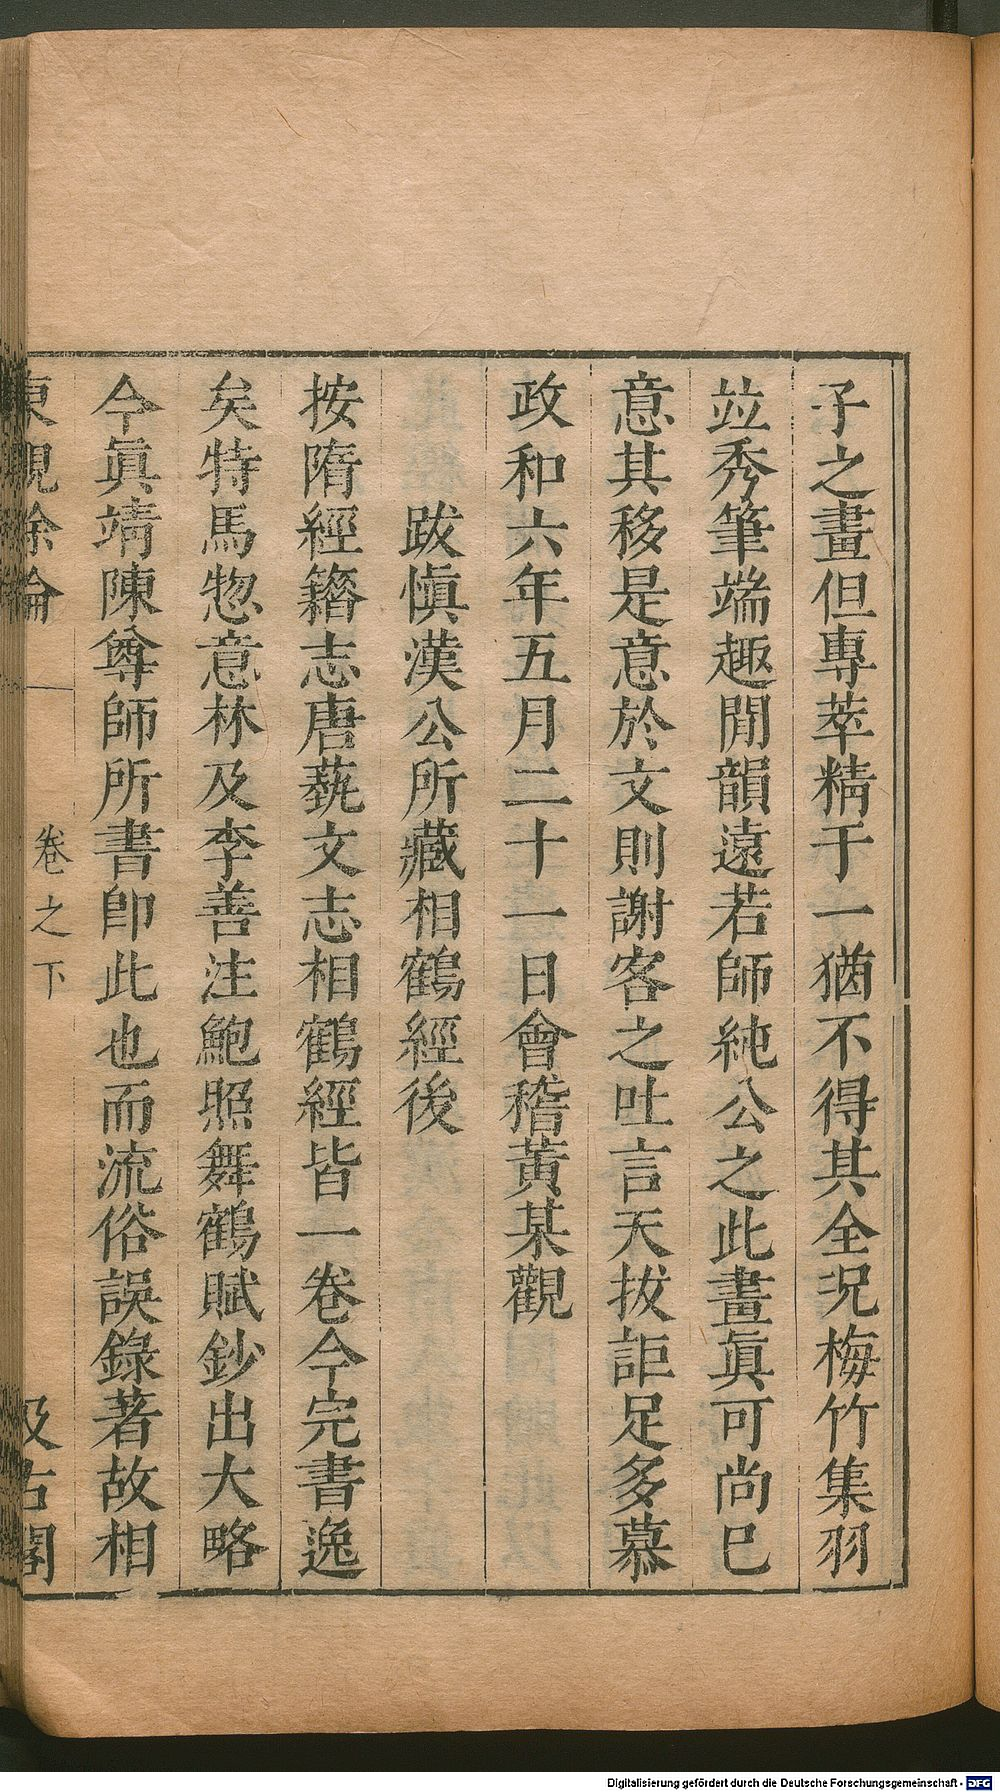 子之畫但專萃精于一猶不得其全況梅竹集羽
竝秀筆端趣閒韻遠若師純公之此畫眞可尚巳
意其移是意於文則謝客之吐言天拔詎足多慕
政和六年五月二十一日會稽黃某觀
跋愼漢公所藏相鶴經後
按隋經籍志唐藝文志相鶴經皆一卷今完書逸
矣特馬惣意林及李善注鮑照舞鶴賦鈔出大略
今眞靖陳尊師所書卽此也而流俗誤錄著故相
東觀餘論
卷之下
汲古閣
Digitalisierung gefördert durch die Deutsche Forschungsgemeinschaft - DFG